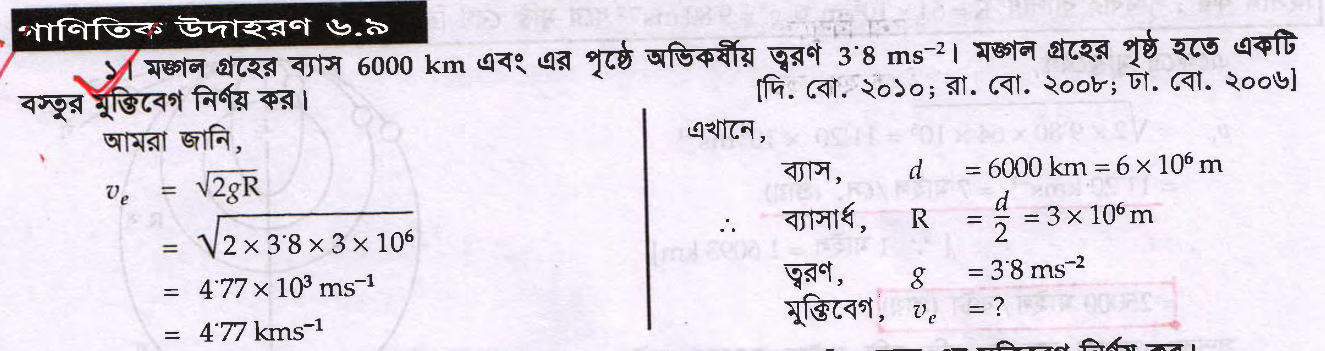 গাণিতিক উদাহরণ ৬.৯
১। মঙ্গল গ্রহের ব্যাস 6000 km এবং এর পৃষ্ঠে অভিকর্ষীয় ত্বরণ 3·8 ms⁻²। মঙ্গল গ্রহের পৃষ্ঠ হতে একটি
বস্তুর মুক্তিবেগ নির্ণয় কর।
[দি. বো. ২০১০; রা. বো. ২০০৮; ঢা. বো. ২০০৬]
আমরা জানি,
vₑ = √2gR
= √2 × 3·8 × 3 × 10⁶
= 4·77 × 10³ ms⁻¹
= 4·77 kms⁻¹
এখানে,
ব্যাস, d = 6000 km = 6 × 10⁶ m
∴ ব্যাসার্ধ, R = d/2 = 3 × 10⁶ m
ত্বরণ, g = 3·8 ms⁻²
মুক্তিবেগ, vₑ = ?